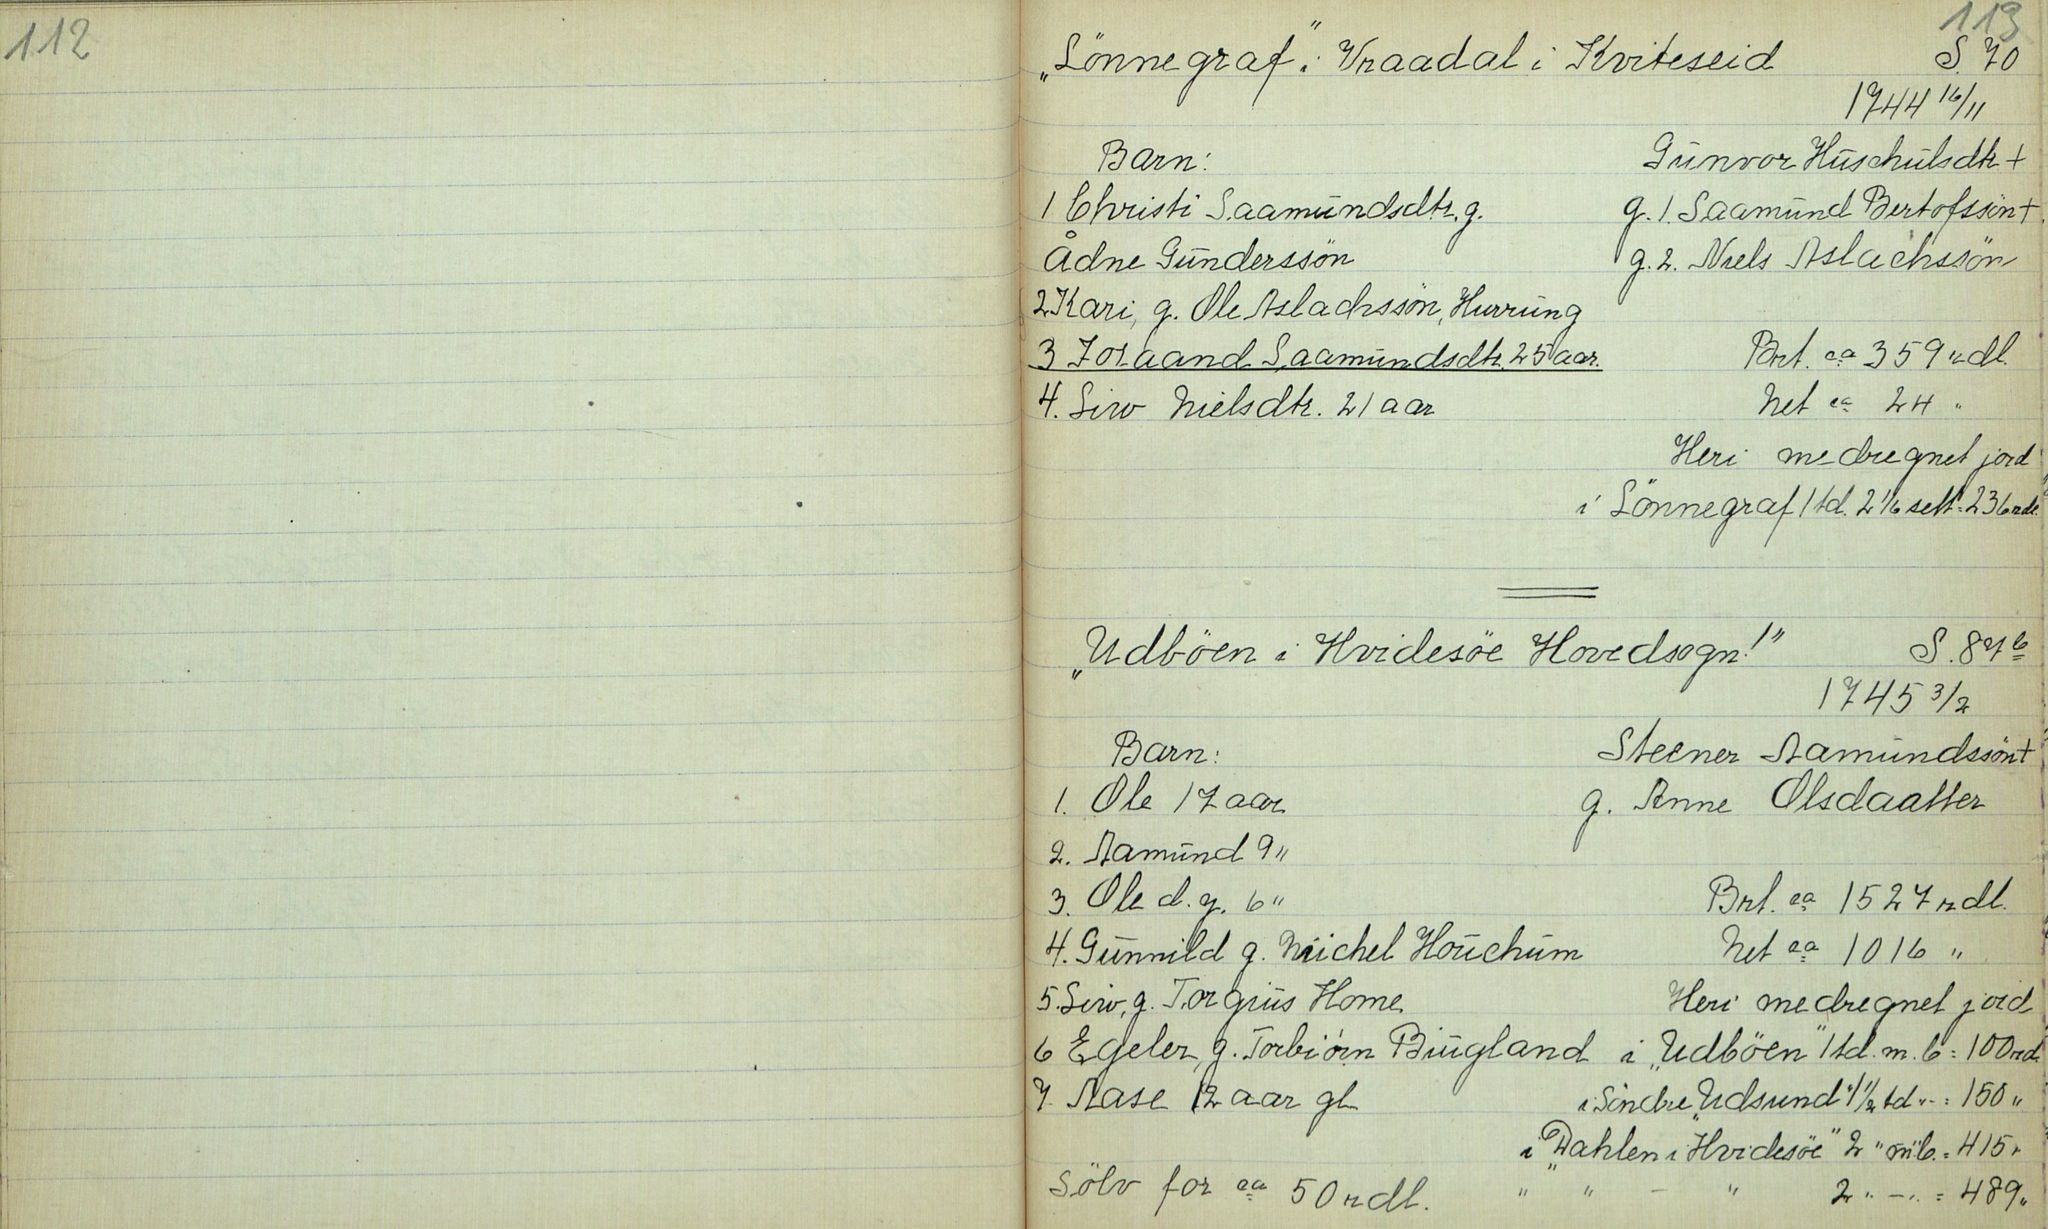 112
113
„Lönnegraf" i Vraadal i Kviteseid S. 70
1744 16/11
Barn: Gunvor Huschulsdtr +
1 Christi Saamundsdtr, g. g. 1. Saamund Bertofssön +
Ådne Gunderssön g. 2. Niels Aslachssön
2 Kari, g. Ole Aslachssön, Hurrung
3 Joraand Saamundsdtr. 25 aar. Brt. ca 359 rdl.
4. Siw Nielsdtr. 21 aar Net ca 24 "
Heri medregnet jord
i Lönnegraf 1 td. 2 1/6 sett = 236 rdl.
„Udböen i Hvidesöe Hovedsogn!" S. 87 b
1745 3/2
Barn: Steener Aamundssön +
1. Ole 17 aar g. Anne Olsdaatter
2. Aamund 9 "
3. Ole d. y. 6 " Brt. ca 1527 rdl.
4. Gunnild g. Michel Houchum Net ca 1016 "
5. Siw, g. Torgius Home Heri medregnet jord
6 Egeler, g. Torbiörn Biugland i „Udböen" 1 td. m. b = 100 rd.
7. Aase 12 aar gl i Sindre „Udsund" 1 1/2 td " - = 150 "
i „Dahlen i Hvidesöe" 2 " m b. = 415 "
Sölv for ca 50 rdl. " " - " 2 " - " = 489 "